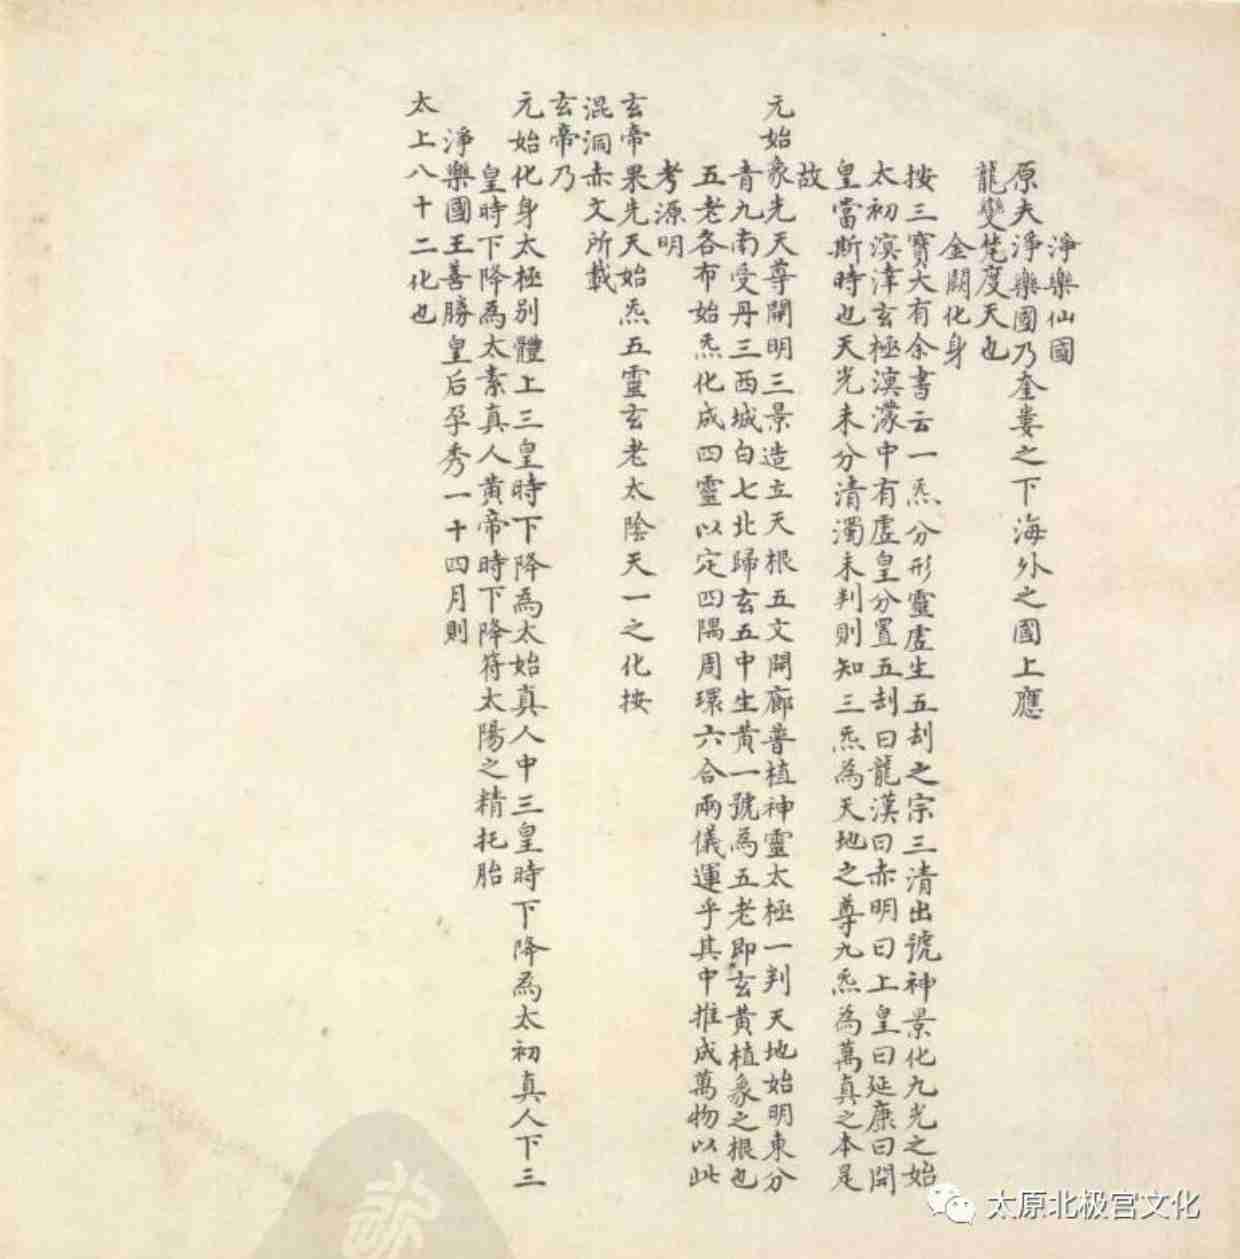 淨樂仙國
原夫淨樂國乃奎婁之下海外之國上應
龍變梵度天也
金闕化身
按三寶大有余書云一炁分形靈虛生五刼之宗三清出號神景化九光之始
太初溟涬玄極溟濛中有虛皇分置五刼曰龍漢曰赤明曰上皇曰延康曰開
皇當斯時也天光未分清濁未判則知三炁為天地之尊九炁為萬真之本是
故
元始象先天尊開明三景造立天根五文開廊普植神靈太極一判天地始明東分
青九南受丹三西城白七北歸玄五中生黄一號為五老即玄黄植象之根也
五老各布始炁化成四靈以定四隅周環六合兩儀運乎其中推成萬物以此
考源明
玄帝果先天始炁五靈玄老太陰天一之化按
混洞赤文所載
玄帝乃
元始化身太極別體上三皇時下降為太始真人中三皇時下降為太初真人下三
皇時下降為太素真人黄帝時下降符太陽之精托胎
淨樂國王善勝皇后孕秀一十四月則
太上八十二化也
太原北极宫文化